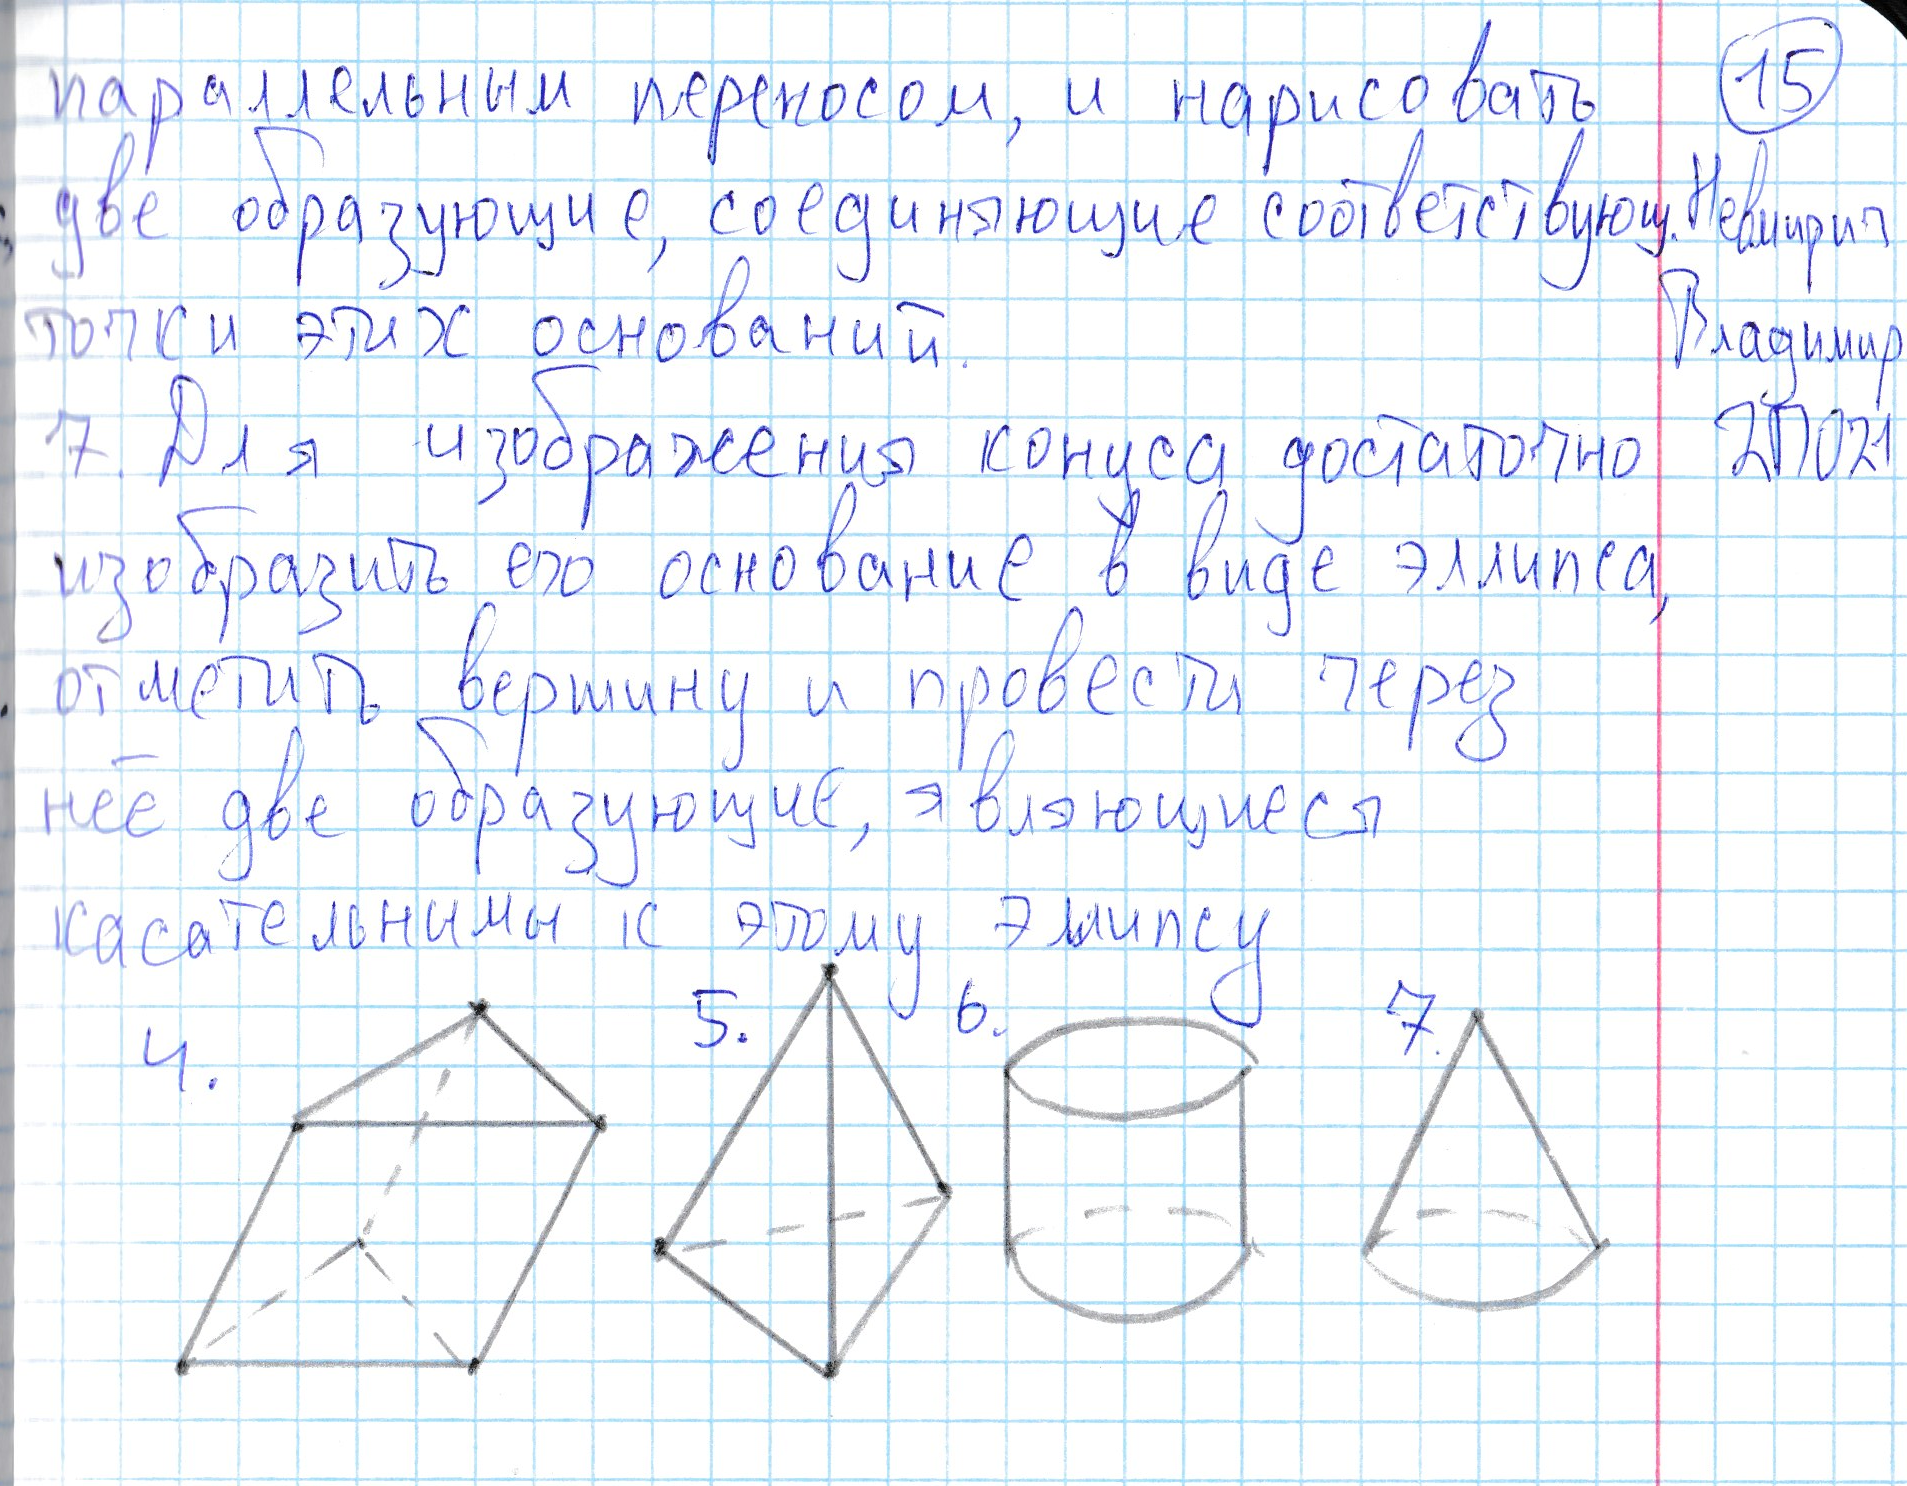 параллельным переносом, и нарисовать
15
две образующие, соединяющие соответствующ.
точки этих оснований.
Владимир
7. Для изображения конуса достаточно
2П021
изобразить его основание в виде эллипса,
отметить вершину и провести через
неё две образующие, являющиеся
касательнимы к этому эллипсу
4.
5.
6.
7.